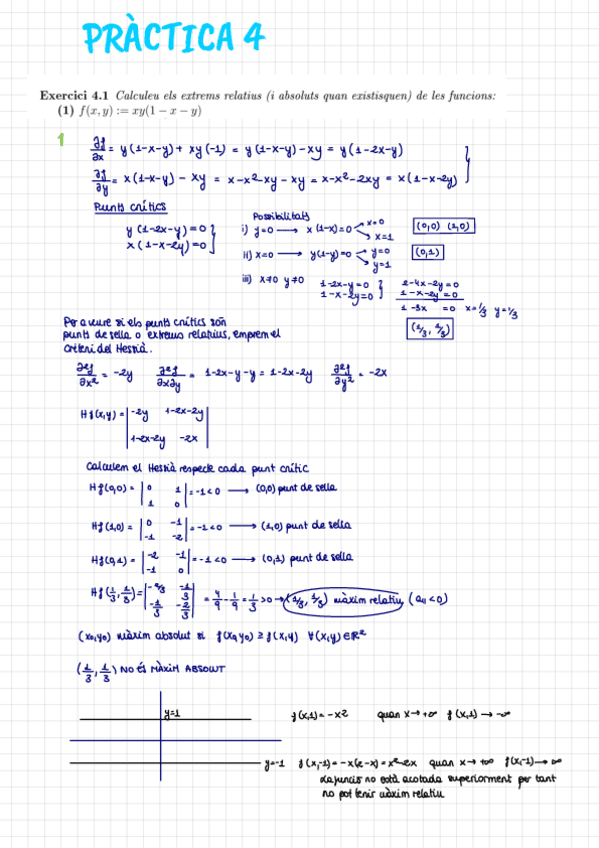 PRÀCTICA 4
Exercici 4.1 Calculeu els extrems relatius (i absoluts quan existisquen) de les funcions:
(1) f(x, y) := xy(1 − x − y)
1
∂f/∂x = y(1-x-y) + xy(-1) = y(1-x-y) - xy = y(1-2x-y)
∂f/∂y = x(1-x-y) - xy = x-x²-xy-xy = x-x²-2xy = x(1-x-2y)
Punts crítics
y(1-2x-y)=0
x(1-x-2y)=0
Possibilitats
i) y=0 → x(1-x)=0 x=0 x=1 (0,0) (1,0)
ii) x=0 → y(1-y)=0 y=0 y=1 (0,1)
iii) x≠0 y≠0 1-2x-y=0 2-4x-2y=0
1-x-2y=0 1-x-2y=0
1-3x =0 x=1/3 y=1/3
(1/3, 1/3)
Per a veure si els punts crítics són
punts de sella o extrems relatius, emprem el
criteri del Hessià.
∂²f/∂x² = -2y ∂²f/∂x∂y = 1-2x-y-y = 1-2x-2y ∂²f/∂y² = -2x
Hf(x,y) = | -2y 1-2x-2y |
| 1-2x-2y -2x |
Calculem el Hessià respecte cada punt crític
Hf(0,0) = | 0 1 | = -1<0 → (0,0) punt de sella
| 1 0 |
Hf(1,0) = | 0 -1 | = -1<0 → (1,0) punt de sella
| -1 -2 |
Hf(0,1) = | -2 -1 | = -1<0 → (0,1) punt de sella
| -1 0 |
Hf(1/3, 1/3) = | -2/3 -1/3 | = 4/9 - 1/9 = 1/3 >0 → (1/3, 1/3) màxim relatiu (a₁₁<0)
| -1/3 -2/3 |
(x₀,y₀) màxim absolut si f(x₀,y₀) ≥ f(x,y) ∀(x,y)∈R²
(1/3, 1/3) NO ÉS MÀXIM ABSOLUT
y=1 f(x,1) = -x² quan x→+∞ f(x,1) → -∞
y=-1 f(x,-1) = -x(2-x) = x²-2x quan x→+∞ f(x,-1) → ∞
La funció no està acotada superiorment per tant
no pot tenir màxim relatiu